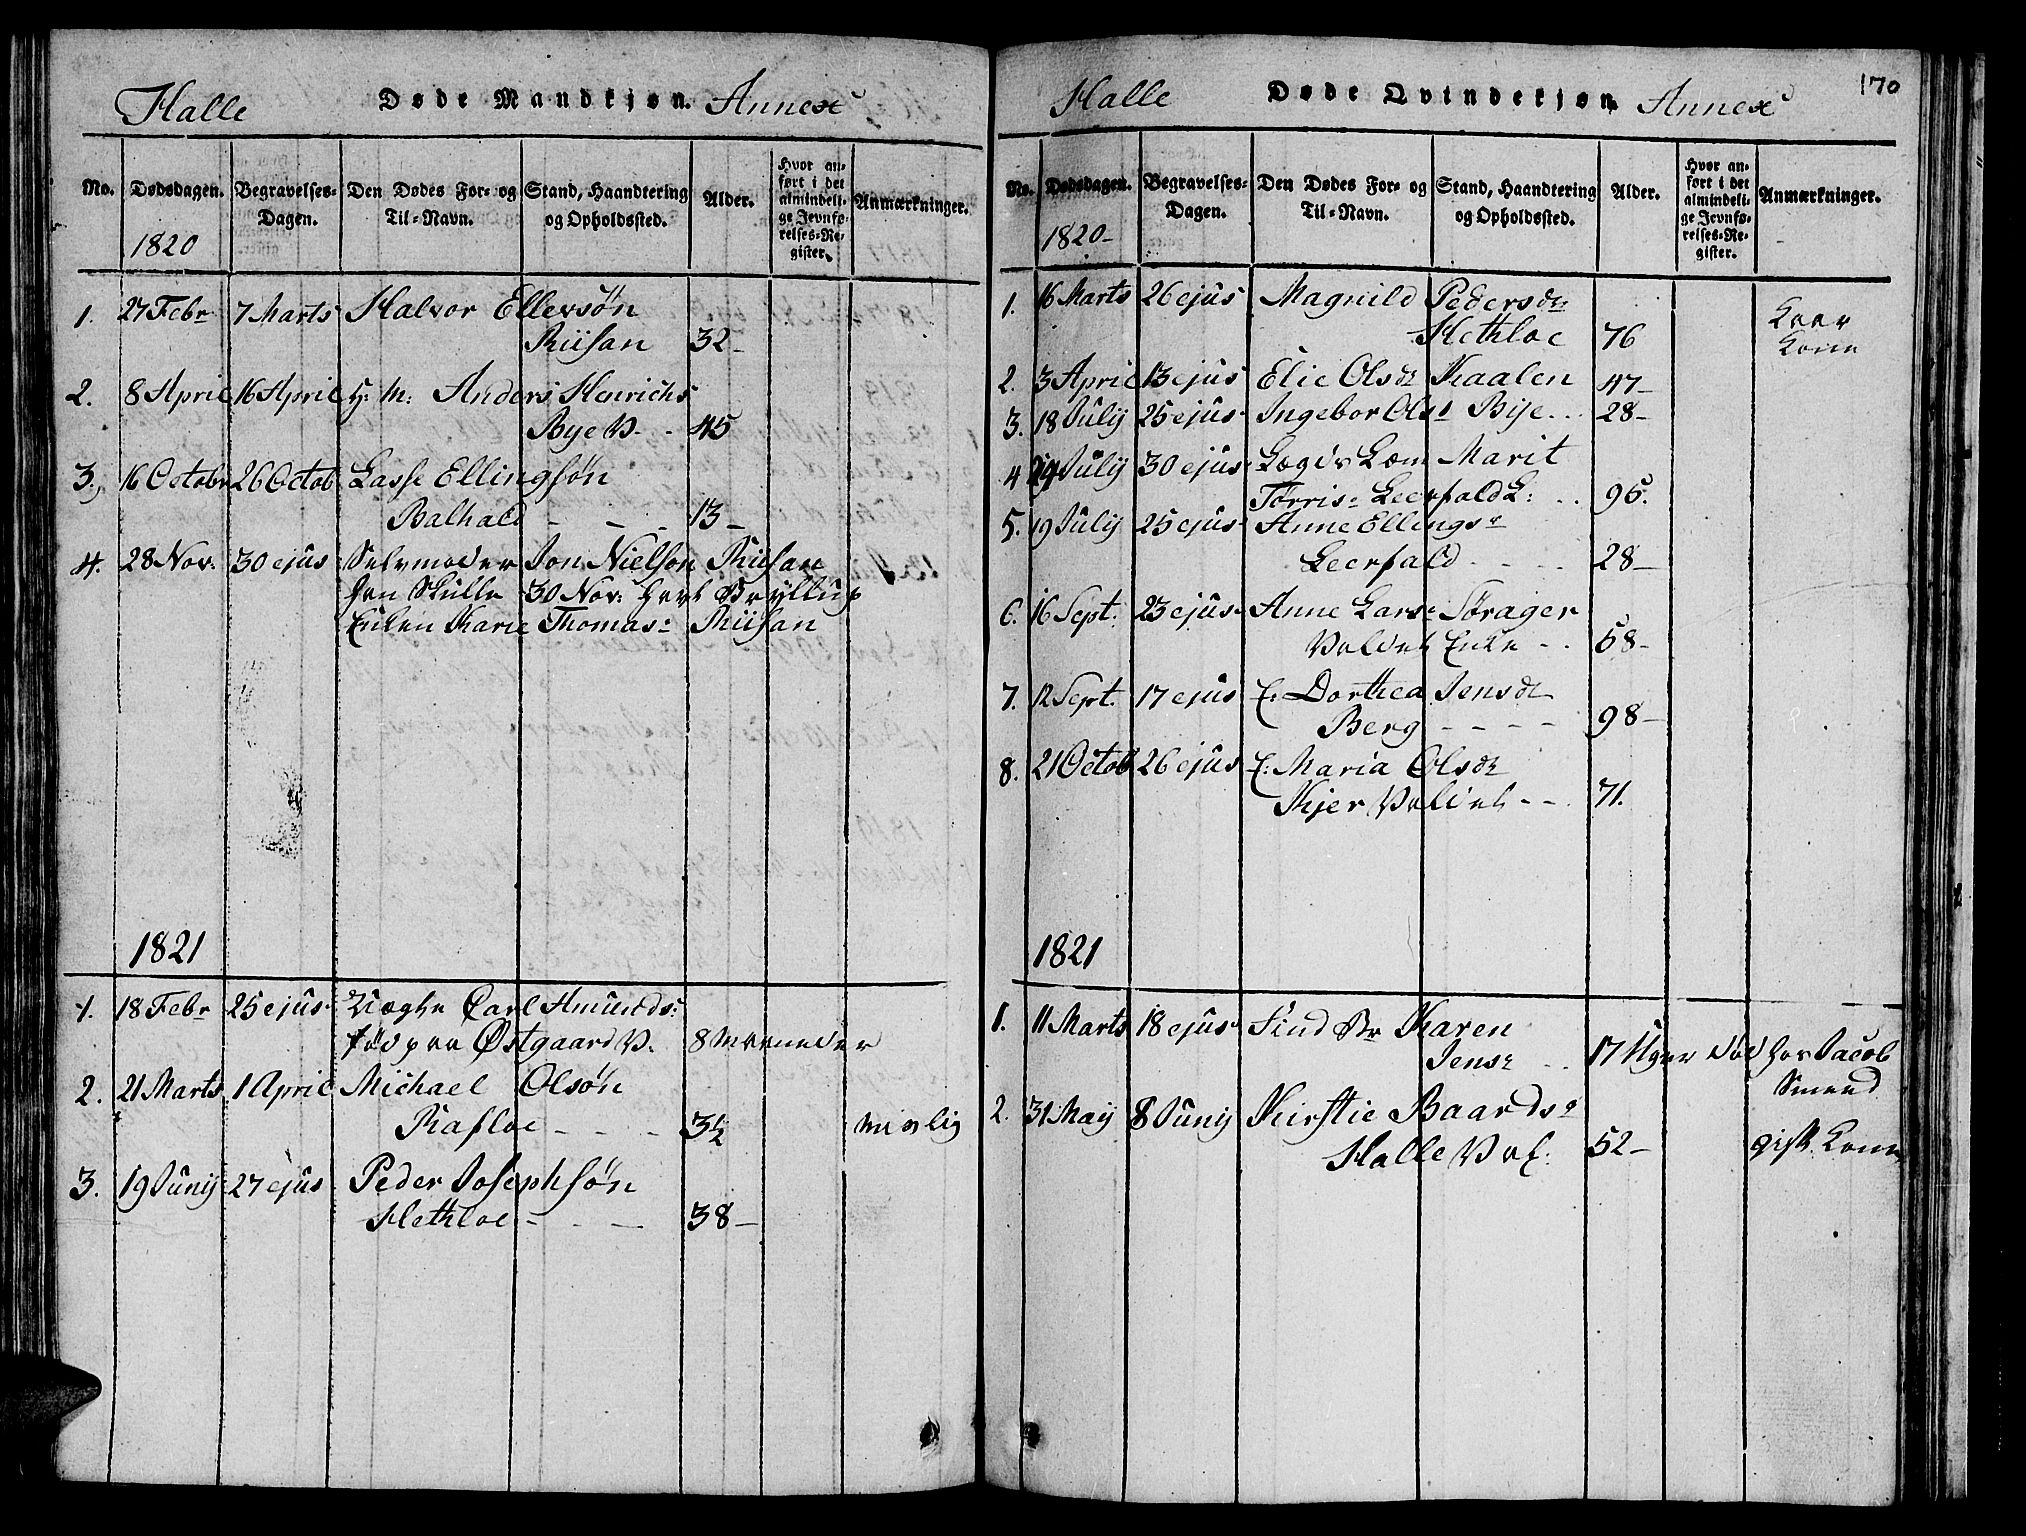 Halle Døde Mandkjøn. Annex
No. Dødsdagen. Begravelses-Dagen. Den Dødes For- og Til-Navn. Stand, Haandtering og Opholdssted. Alder. Hvor anført i det almindelige Jevnførelses-Register. Anmærkninger.
1820
1. 27 Febr 7 Marts Halvor Ellevsøn
Riisan 32
2. 8 April 16 April G: M: Anders Henrichs
Bye V. 45
3. 16 Octobr 26 Octob Lasse Ellingsøn
Balhald 13
4. 28 Nov. 30 ejus Selvmoder Jon Nielson Riisan
han skulle 30 Nov: havt Bryllup
Enken Karie Thomas: Riisan
1821
1. 18 Febr 25 ejus Uægte Carl Amunds:
fød paa Østgaard V. 8 Maaneder
2. 21 Marts 1 April Michael Olsøn
Rafloe 3½
3. 19 Junij 27 ejus Peder Josephsøn
Hethloe 38
Halle Døde Qvindekjøn Annex 170
No. Dødsdagen. Begravelses-Dagen. Den Dødes For- og Til-Navn. Stand, Haandtering og Opholdssted. Alder. Hvor anført i det almindelige Jevnførelses-Register. Anmærkninger.
1820
1. 16 Marts 26 ejus Magnild Pedersdr
Hethloe 76
Kone
2. 3 April 13 ejus Elie Olsdr Kaalen 47
3. 18 July 25 ejus Ingebor Ols: Bye 28
4 24 July 30 ejus Lægds Lem Marit
Tørris: Leerfald L: 95.
5. 19 July 25 ejus Anne Ellings:
Leerfald 28
6. 16 Sept. 23 ejus Anne Lars: Sørager
Valdet Enke 58
7. 12 Sept. 17 ejus E: Dorthea Jensdr
Berg 98
8. 21 Octob 26 ejus E: Maria Olsdr
Kjer Valdet 71.
1821
1. 11 Marts 18 ejus Karen
Jens: 17 Uger død hos Jacob
Smed
2. 31 May 8 Junij Kirstie Baards:
Halle Val: 52 gift Kone